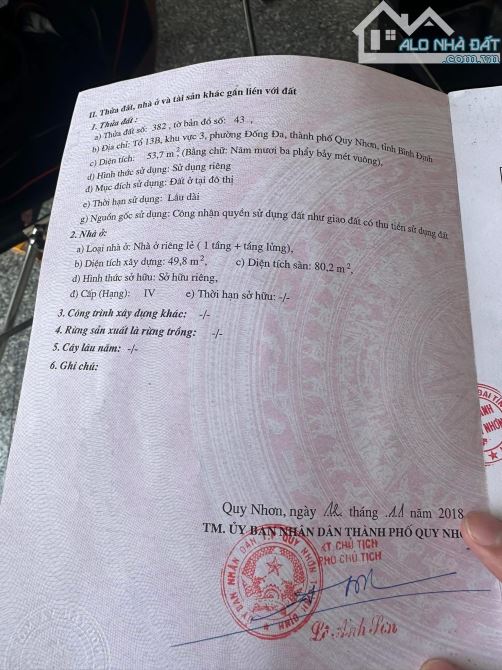 ALO NHÀ ĐẤT
.com.vn
II. Thửa đất, nhà ở và tài sản khác gắn liền với đất
1. Thửa đất:
a) Thửa đất số: 382, tờ bản đồ số: 43 ,
b) Địa chỉ: Tổ 13B, khu vực 3, phường Đống Đa, thành phố Quy Nhơn, tỉnh Bình Định
c) Diện tích: 53,7 m², (Bằng chữ: Năm mươi ba phẩy bảy mét vuông),
d) Hình thức sử dụng: Sử dụng riêng
đ) Mục đích sử dụng: Đất ở tại đô thị
e) Thời hạn sử dụng: Lâu dài
g) Nguồn gốc sử dụng: Công nhận quyền sử dụng đất như giao đất có thu tiền sử dụng đất
2. Nhà ở:
a) Loại nhà ở: Nhà ở riêng lẻ ( 1 tầng + tầng lửng),
b) Diện tích xây dựng: 49,8 m², c) Diện tích sàn: 80,2 m²,
d) Hình thức sở hữu: Sở hữu riêng,
đ) Cấp (Hạng): IV e) Thời hạn sở hữu: -/-
3. Công trình xây dựng khác: -/-
4. Rừng sản xuất là rừng trồng: -/-
5. Cây lâu năm: -/-
6. Ghi chú:
Quy Nhơn, ngày 12 tháng 11 năm 2018
TM. ỦY BAN NHÂN DÂN THÀNH PHỐ QUY NHƠ
KT CHỦ TỊCH
PHÓ CHỦ TỊCH